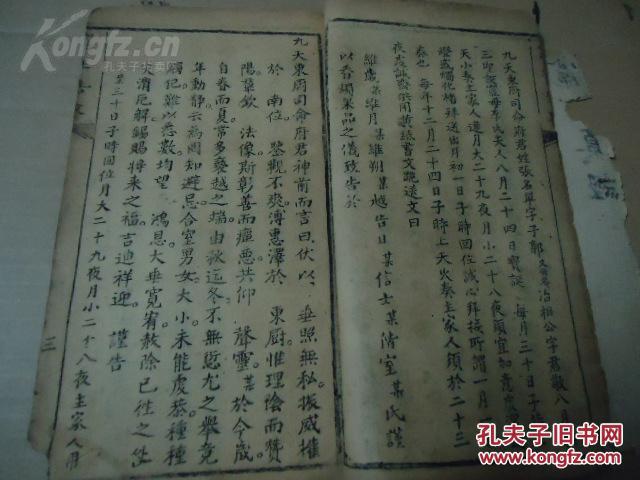 九天東廚司命府君姓張名單字子郭
冶相公字君戳八月
三聖誕
李氏夫人八月二十四日寶誕 每月三十日子時
天小奏主家人遇月大二十九夜月小二十八夜頭宜如意
燈或燭化楮拜送出月初一日子時回位誠心拜接所謂一月一
奏也 每年十二月二十四日子時上天大奏主家人須於二十三
夜虔誠齋供用黃紙書文跪遶文曰
維歲某維月某維朔某越告日某信士某偕室某氏謹
以香燭菓品之儀致告於
九天東廚司命府君神前而言曰伏以 垂照無私振威權
於 南位 鑒觀不爽溥惠澤於 東厨惟理陰而贊
陽羣欽 法像斯彰善而癉惡共仰 聲靈某於今歲
自春而夏常多褻越之端由秋迄冬不無愆尤之舉竟
年動静云為罔知避忌合室男女大小未能虔恭種種
觸犯難以悉數均望 鴻恩大垂寬宥赦除已往之
災消厄解錫賜將來之福吉迪祥迎 謹告
某三十日子時回位月大二十九夜月小二十八夜主家人用
三
Kongfz.com
孔夫子旧书网
Kongfz.cn
孔夫子旧书网